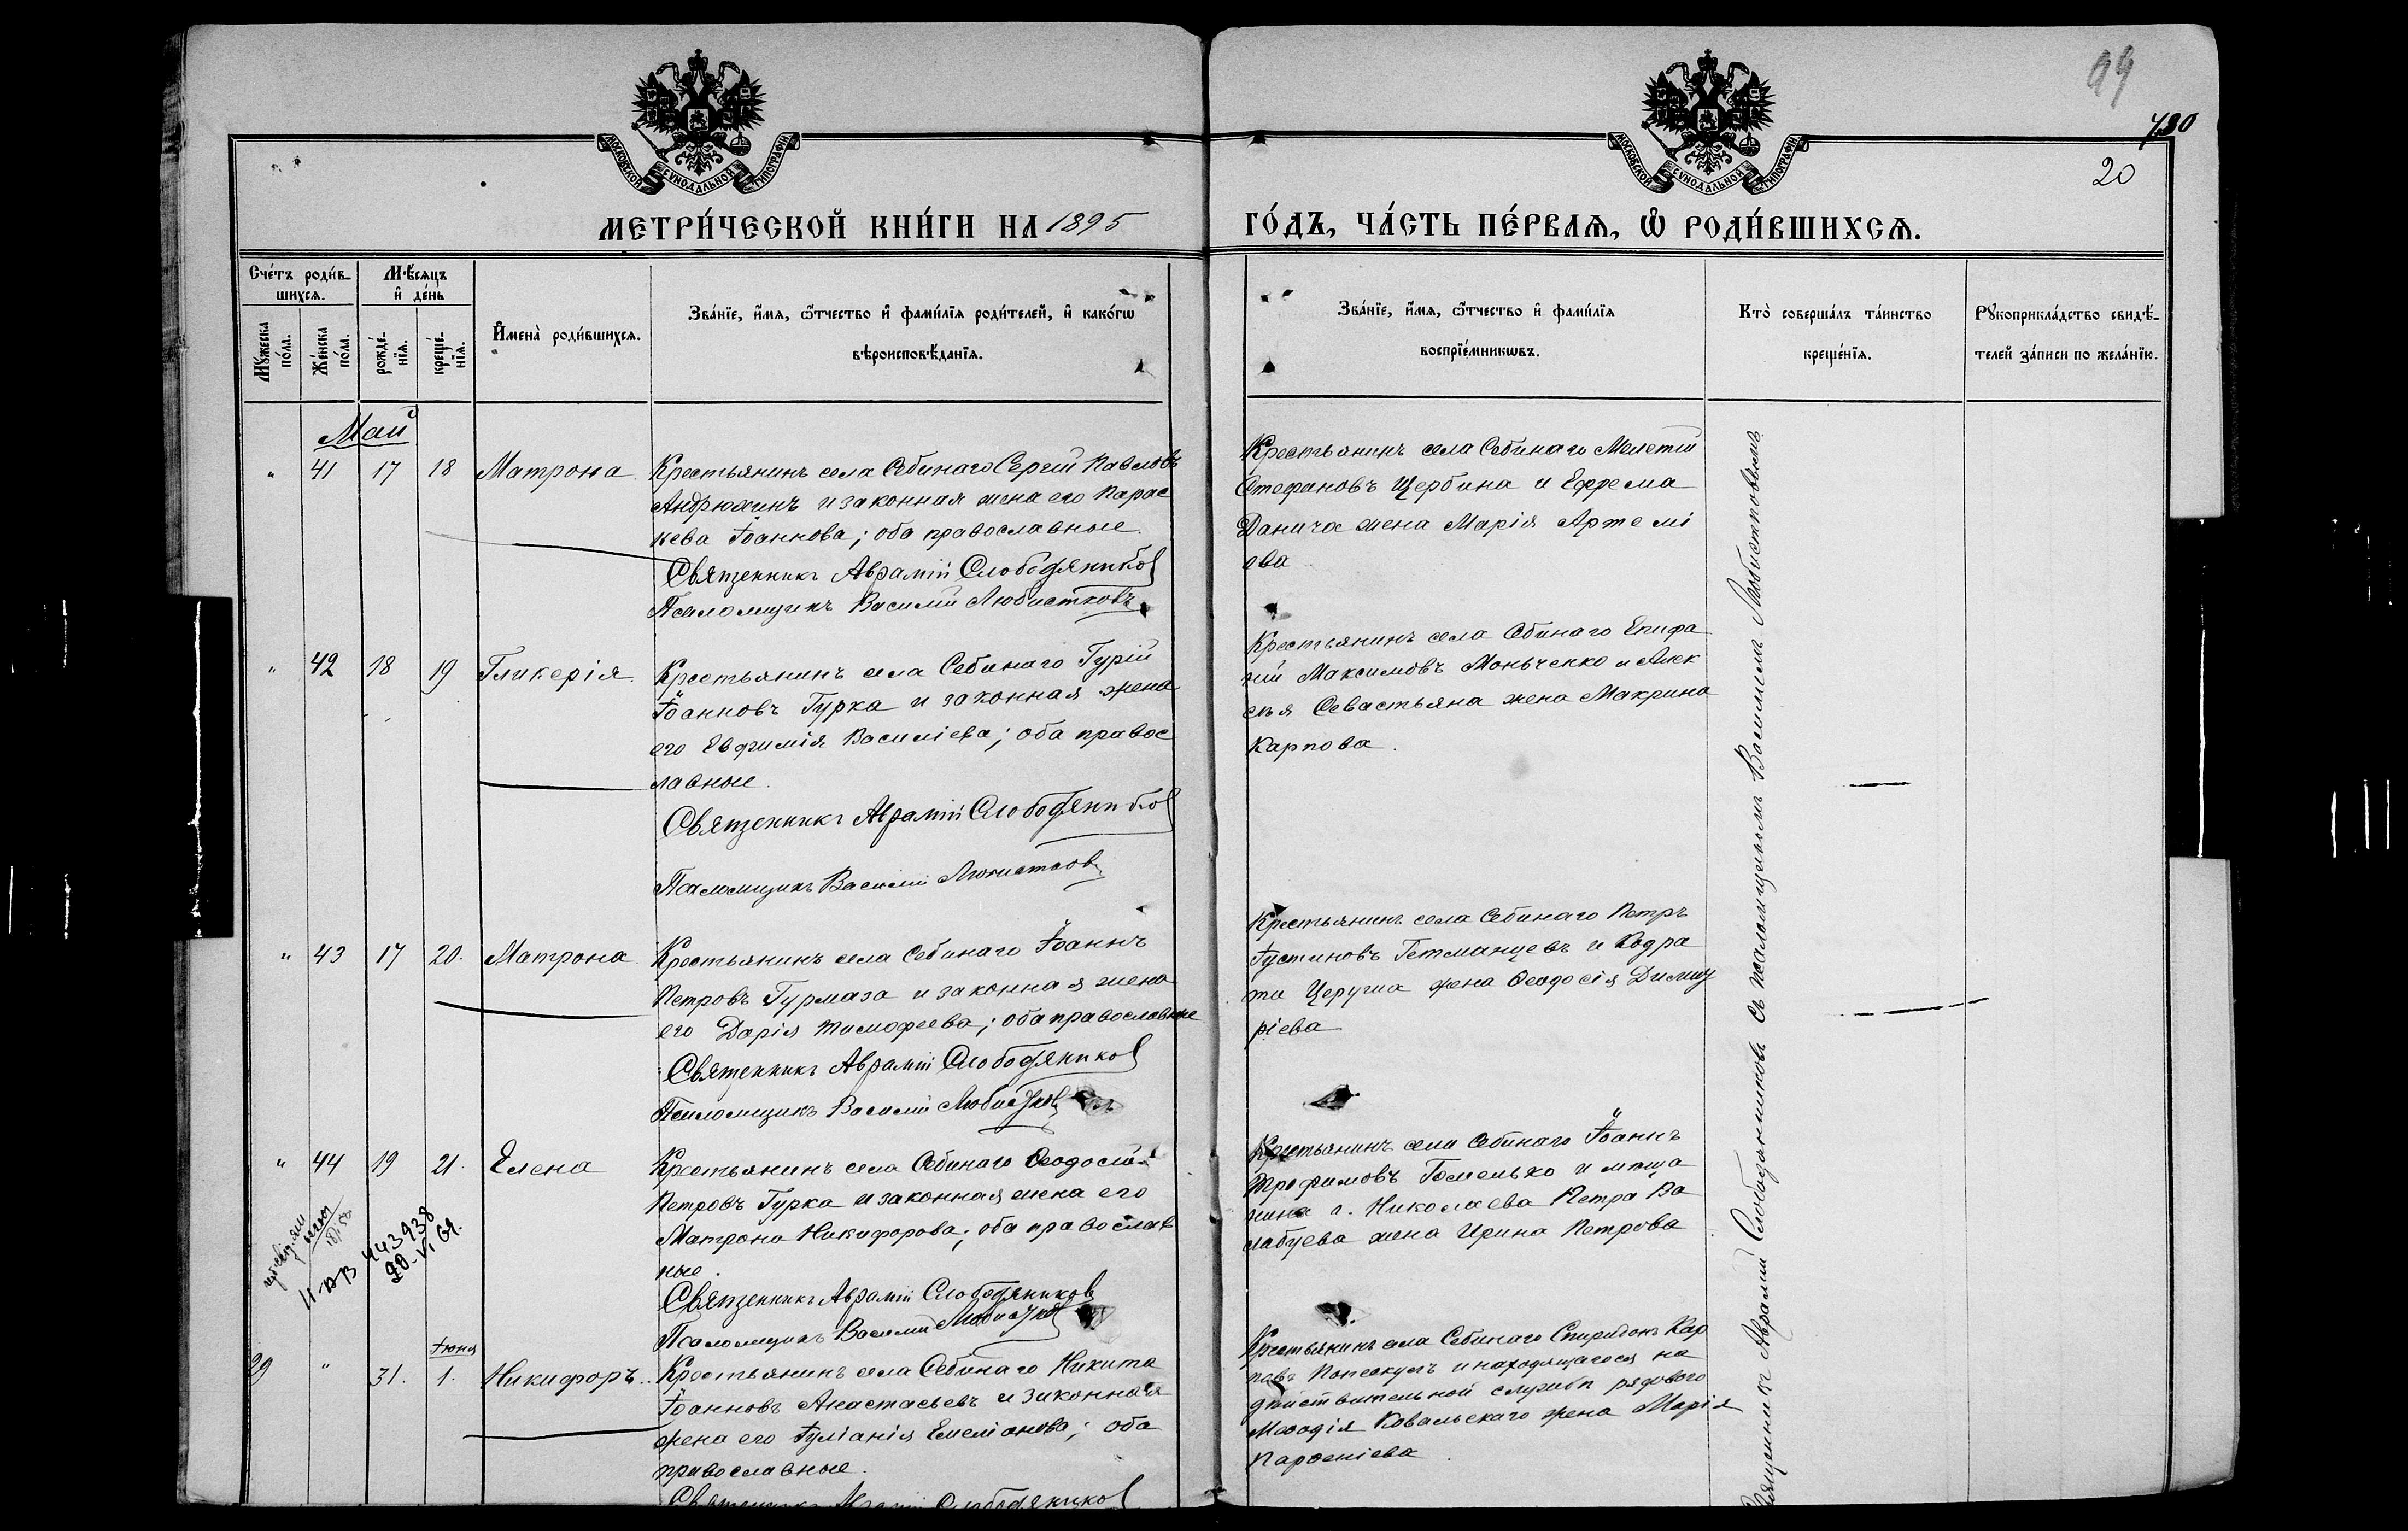 99
780
20
МОСКОВСКОЙ СѴНОДАЛЬНОЙ ТИПОГРАФІИ
МОСКОВСКОЙ СѴНОДАЛЬНОЙ ТИПОГРАФІИ
МЕТРИ́ЧЕСКОЙ КНИ́ГИ НА 1895
ГО́ДЪ, ЧА́СТЬ ПЕ́РВАѦ, Ѡ҆ РОДИ́ВШИХСѦ.
Сче́тъ роди́в-
шихсѧ.
Мѣ́сѧцъ
и҆ де́нь
Мꙋ́жеска
по́ла.
Же́нска
по́ла.
рожде́-
нїѧ.
креще́-
нїѧ.
И҆мена̀ роди́вшихсѧ.
Зва́нїе, и҆́мѧ, ѻ҆́тчество и҆ фами́лїѧ роди́телей, и҆ како́гѡ
вѣроисповѣ́данїѧ.
Зва́нїе, и҆́мѧ, ѻ҆́тчество и҆ фами́лїѧ
воспрїе́мникѡвъ.
Кто̀ соверша́лъ та́инство
креще́нїѧ.
Рꙋкоприкла́дство свидѣ́-
телей за́писи по жела́нїю.
Май
" 41 17 18 Матрона
Крестьянинъ села Себинаго Сергій Павловъ
Андрюхинъ и законная жена его Парас
кева Іоаннова; оба православные.
Священникъ Аврамій Слободяников
Псаломщикъ Василій Любистковъ
Крестьянинъ села Себинаго Мелетій
Стефановъ Щербина и Ефрема
Данича жена Марія Артемі
ева
" 42 18 19 Гликерія.
Крестьянинъ села Себинаго Гурій
Іоанновъ Гурка и законная жена
его Евфимія Василіева; оба правос
лавные.
Священникъ Аврамій Слободяников
Псаломщикъ Василій Любистков
Крестьянинъ села Себинаго Епифа
ній Максимовъ Моньченко и Алек
сѣя Севастьяна жена Макрина
Карпова.
" 43 17 20. Матрона
Крестьянинъ села Себинаго Іоаннъ
Петровъ Гурмаза и законная жена
его Дарія Тимофеева; оба православные
Священникъ Аврамій Слободяников
Псаломщикъ Василій Любистков
Крестьянинъ села Себинаго Петръ
Іустиновъ Гетманцевъ и Кодра
та Церуша жена Ѳеодосія Димит
ріева
" 44 19 21. Елена
Крестьянинъ села Себинаго Ѳеодосій
Петровъ Гурка и законная жена его
Матрона Никифорова; оба православ
ные.
Священникъ Аврамій Слободяников
Псаломщикъ Василій Любистков
Крестьянинъ села Себинаго Іоаннъ
Трофимовъ Гомелько и мѣща
нина г. Николаева Петра Ва
лабуева жена Ирина Петрова
443938
20-VI
Іюня
29 " 31. 1. Никифоръ.
Крестьянинъ села Себинаго Никита
Іоанновъ Анастасьевъ и законная
жена его Іуліанія Емеліанова; оба
православные.
Священникъ Аврамій Слободяников
Крестьянинъ села Себинаго Спиридонъ Кар
повъ Попескулъ и находящагося на
дѣйствительной службѣ рядового
Меѳодія Ковальскаго жена Марія
Парѳеніева.
Священникъ Аврамій Слободяниковъ съ псаломщикомъ Василіемъ Любистковымъ